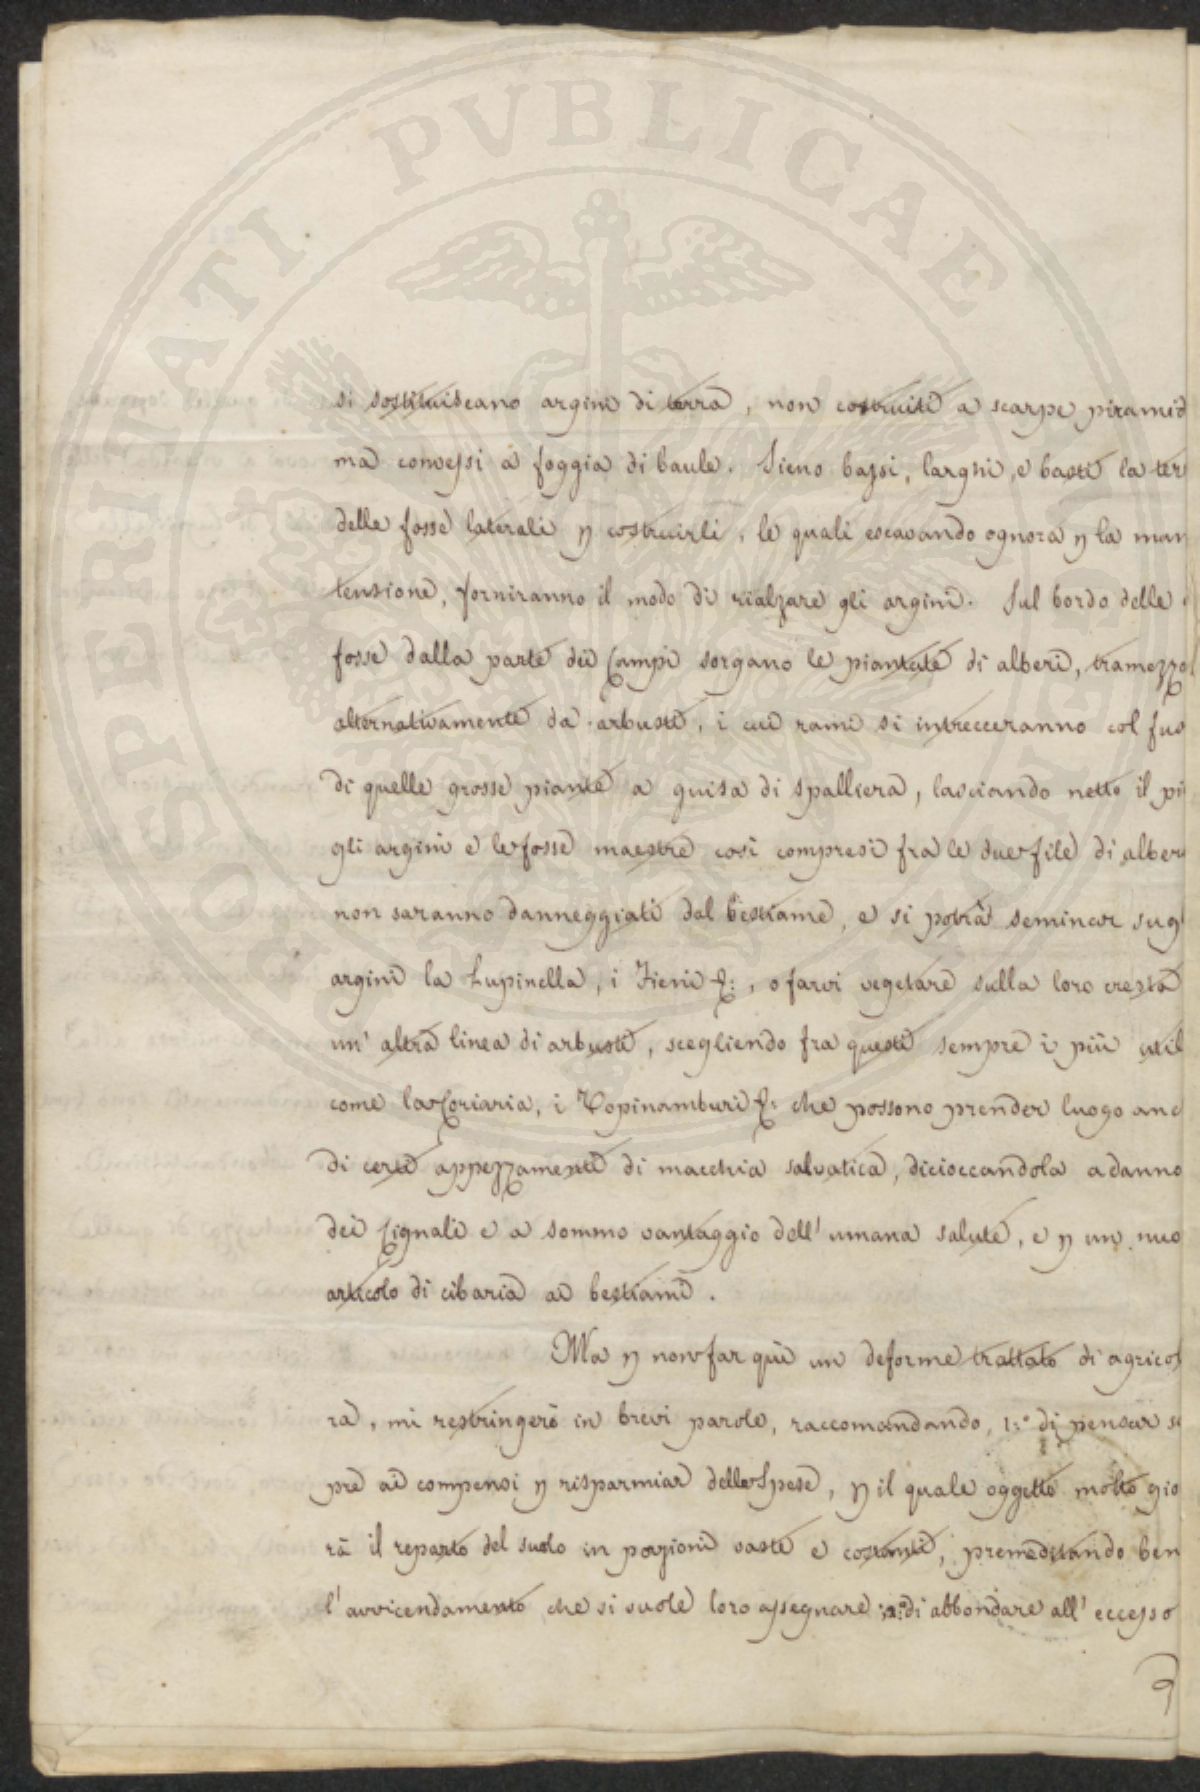 PROSPERITATI PVBLICAE
si sostituiscano argini di terra, non costruiti a scarpe piramid
ma convessi a foggia di baule. Sieno bassi, larghi, e basti la ter
delle fosse laterali p costruirli, le quali escavando ognora p la man
tensione, forniranno il modo di rialzare gli argini. Sul bordo delle
fosse dalla parte dei Campi sorgano le piantate di alberi, tramezzo
alternativamente da arbusti, i cui rami si intrecceranno col fus
di quelle grosse piante a guisa di spalliera, lasciando netto il pi
gli argini e le fosse maestre così compresi fra le due file di alber
non saranno danneggiati dal bestiame, e si potrà seminar sug
argini la Lupinella, i Fieni &:, o farvi vegetare sulla loro cresta
un' altra linea di arbusti, scegliendo fra questi sempre i più util
come la Coriaria, i Topinamburi &: che possono prender luogo anc
di certi appezzamenti di macchia salvatica, dicioccandola a danno
dei Cignali e a sommo vantaggio dell' umana salute, e p un nuo
articolo di cibaria ai bestiami.
Ma p non far quì un deforme trattato di agricol
ra, mi restringerò in brevi parole, raccomandando, 1:° di pensar se
pre ai compensi p risparmiar delle Spese, p il quale oggetto molto gio
rà il reparto del suolo in porzioni vaste e costanti, premeditando ben
l' avvicendamento che si vuole loro assegnare: 2:° di abbondare all' eccesso